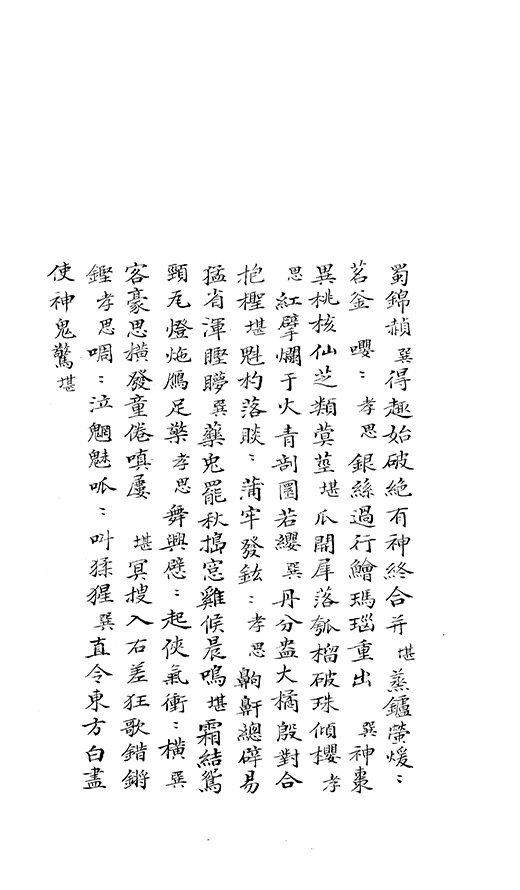 蜀錦赬巽得趣始破絶有神終合并堪蒸鑪螢煖〻
茗釜嚶〻孝思銀絲過行鱠瑪瑙重出巽神棗
異桃核仙芝類蓂莖堪瓜開犀落瓠榴破珠傾攖孝
思紅擘爛于火青剖圓若纓巽丹分盎大橘殷對合
抱檉堪魁杓落睒〻蒲牢發鈜〻孝思齁鼾總辟易
猛省渾瞪矇巽藥兎罷秋搗窓雞候晨鳴堪霜結鴛
頸瓦燈灺鴈足檠孝思舞興僛〻起俠氣衝〻橫巽
客豪思橫發童倦嗔屢堪冥搜入右差狂歌鍇鏘
鏗孝思啁〻泣魍魅呱〻叫猱猩巽直令東方白盡
使神鬼驚堪